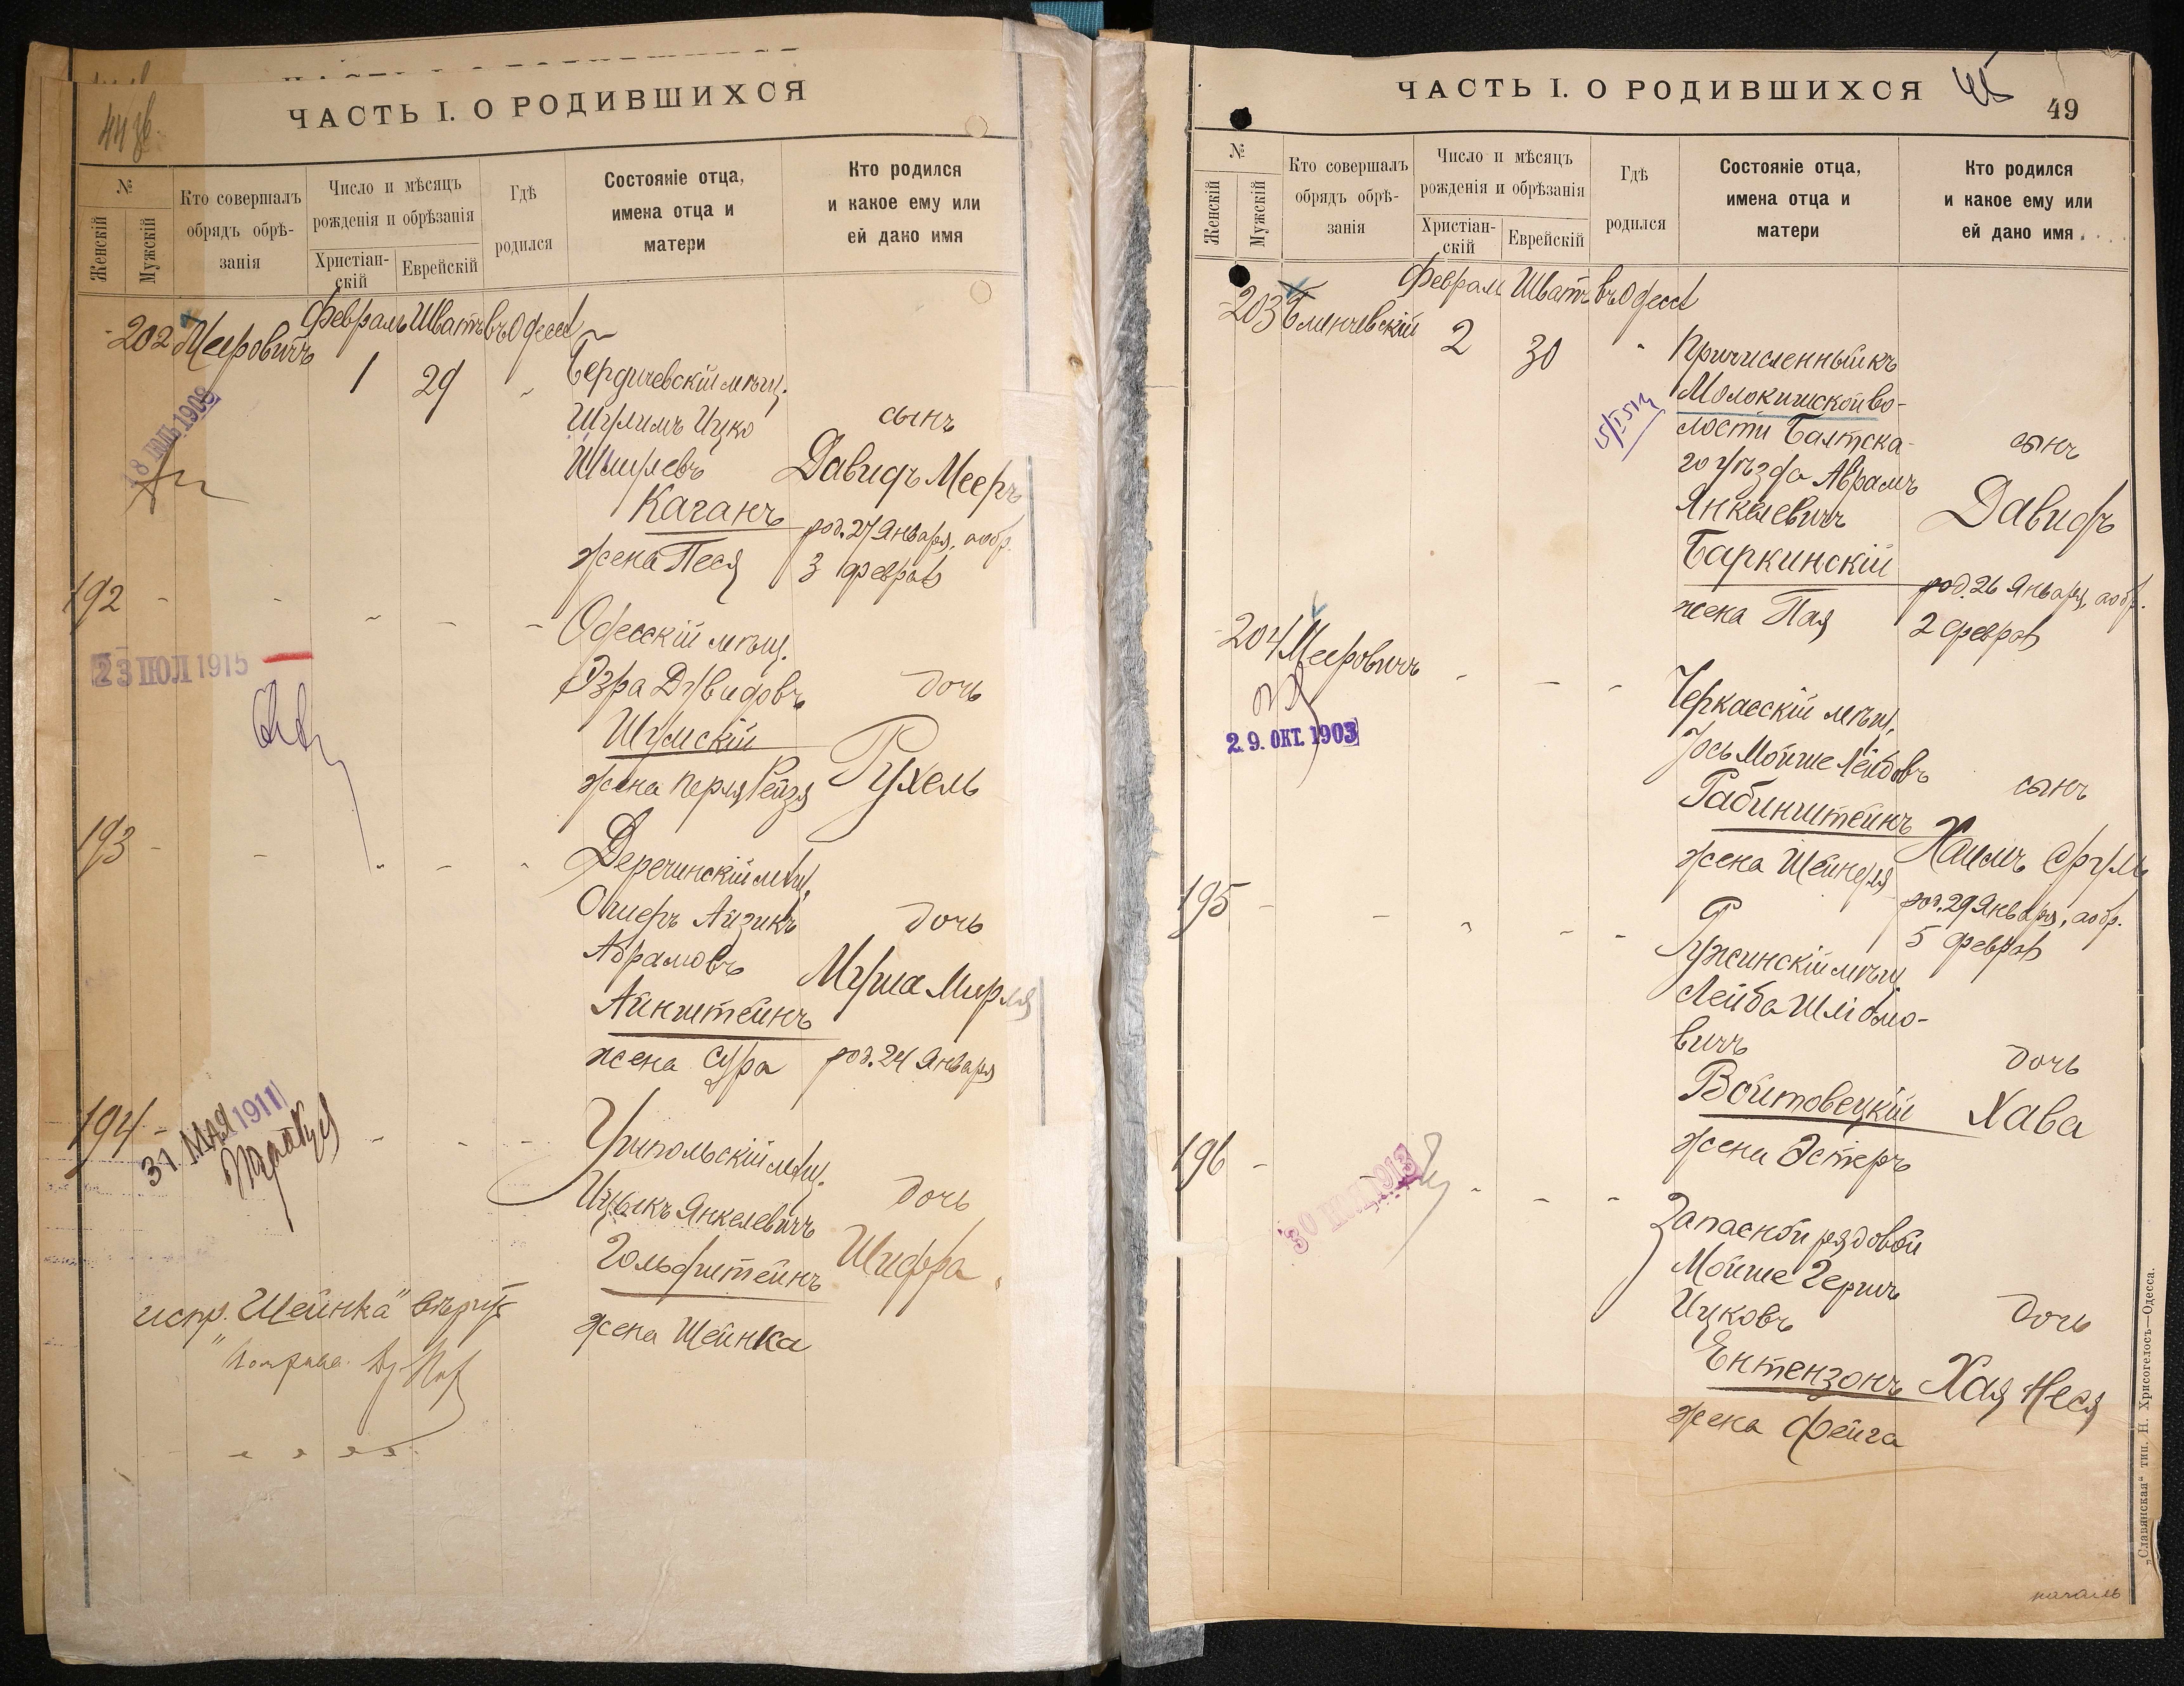 ЧАСТЬ I. О РОДИВШИХСЯ
№
Женскій
Мужскій
Кто совершалъ
обрядъ обрѣ-
занія
Число и мѣсяцъ
рожденія и обрѣзанія
Христіан-
скій
Еврейскій
Гдѣ
родился
Состояніе отца,
имена отца и
матери
Кто родился
и какое ему или
ей дано имя
202 Меировичъ
Февраль Шватъ въ Одессѣ
1 29
Бердичевскій мѣщ.
Шулимъ Ицко
Шмулевъ
Каганъ
жена Песя
сынъ
Давидъ Мееръ
род. 27 Января, а обр.
3 февраля
192
Одесскій мѣщ.
Эзра Давидовъ
Шумскій
жена Перля Рейзя
дочь
Рухель
23 ІЮЛ 1915
193
Деречинскій мѣщ.
Ошеръ Айзикъ
Абрамовъ
Айнштейнъ
жена Сура
дочь
Муша Мирля
род. 24 Января
194
31 МАЯ 1911
Уманьскій мѣщ.
Ицыкъ Янкелевичъ
Гольдштейнъ
жена Шейнка
дочь
Шифра
испр. „Шейнка“ вѣрить
ЧАСТЬ I. О РОДИВШИХСЯ
45
49
№
Женскій
Мужскій
Кто совершалъ
обрядъ обрѣ-
занія
Число и мѣсяцъ
рожденія и обрѣзанія
Христіан-
скій
Еврейскій
Гдѣ
родился
Состояніе отца,
имена отца и
матери
Кто родился
и какое ему или
ей дано имя
203
Февраль Шватъ въ Одессѣ
2 30
Причисленный къ
Молокишской во-
лости Балтска-
го уѣзда Аврамъ
Янкелевичъ
Баркинскій
жена Пая
сынъ
Давидъ
род. 26 Января, а обр.
2 февраля
204 Меировичъ
29. ОКТ. 1903
Черкасскій мѣщ.
Іось Мойше Лейбовъ
Рабинштейнъ
жена Шейндля
сынъ
Хаимъ Сруль
род. 29 Января, а обр.
5 февраля
195
Ружинскій мѣщ.
Лейба Шліомо-
вичъ
Войтовецкій
жена Эстеръ
дочь
Хава
196
Запасной рядовой
Мойше Гершъ
Ицковъ
Ентензонъ
жена Фейга
дочь
Хая Неся
„Славянская“ тип. Н. Хрисогелосъ—Одесса.